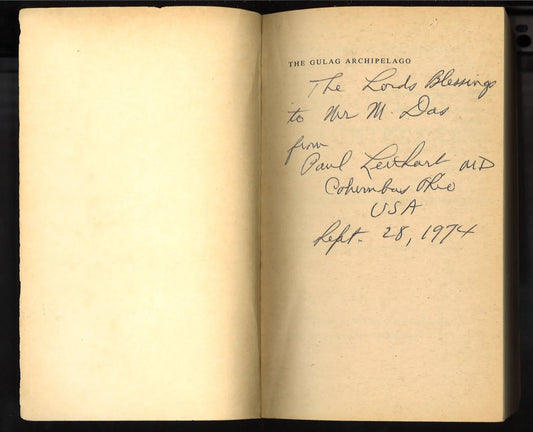 THE GULAG ARCHIPELAGO
The Lords Blessings
to Mr M. Das
from
Paul MD
Columbus Ohio
USA
Sept. 28, 1974